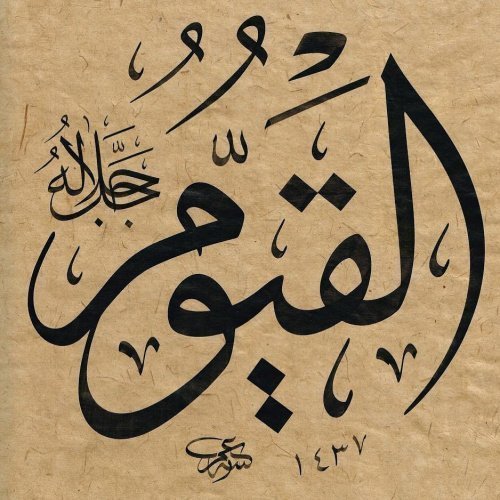 القَيُّومُ
جَلَّ جَلَالُهُ
١٤٣٧